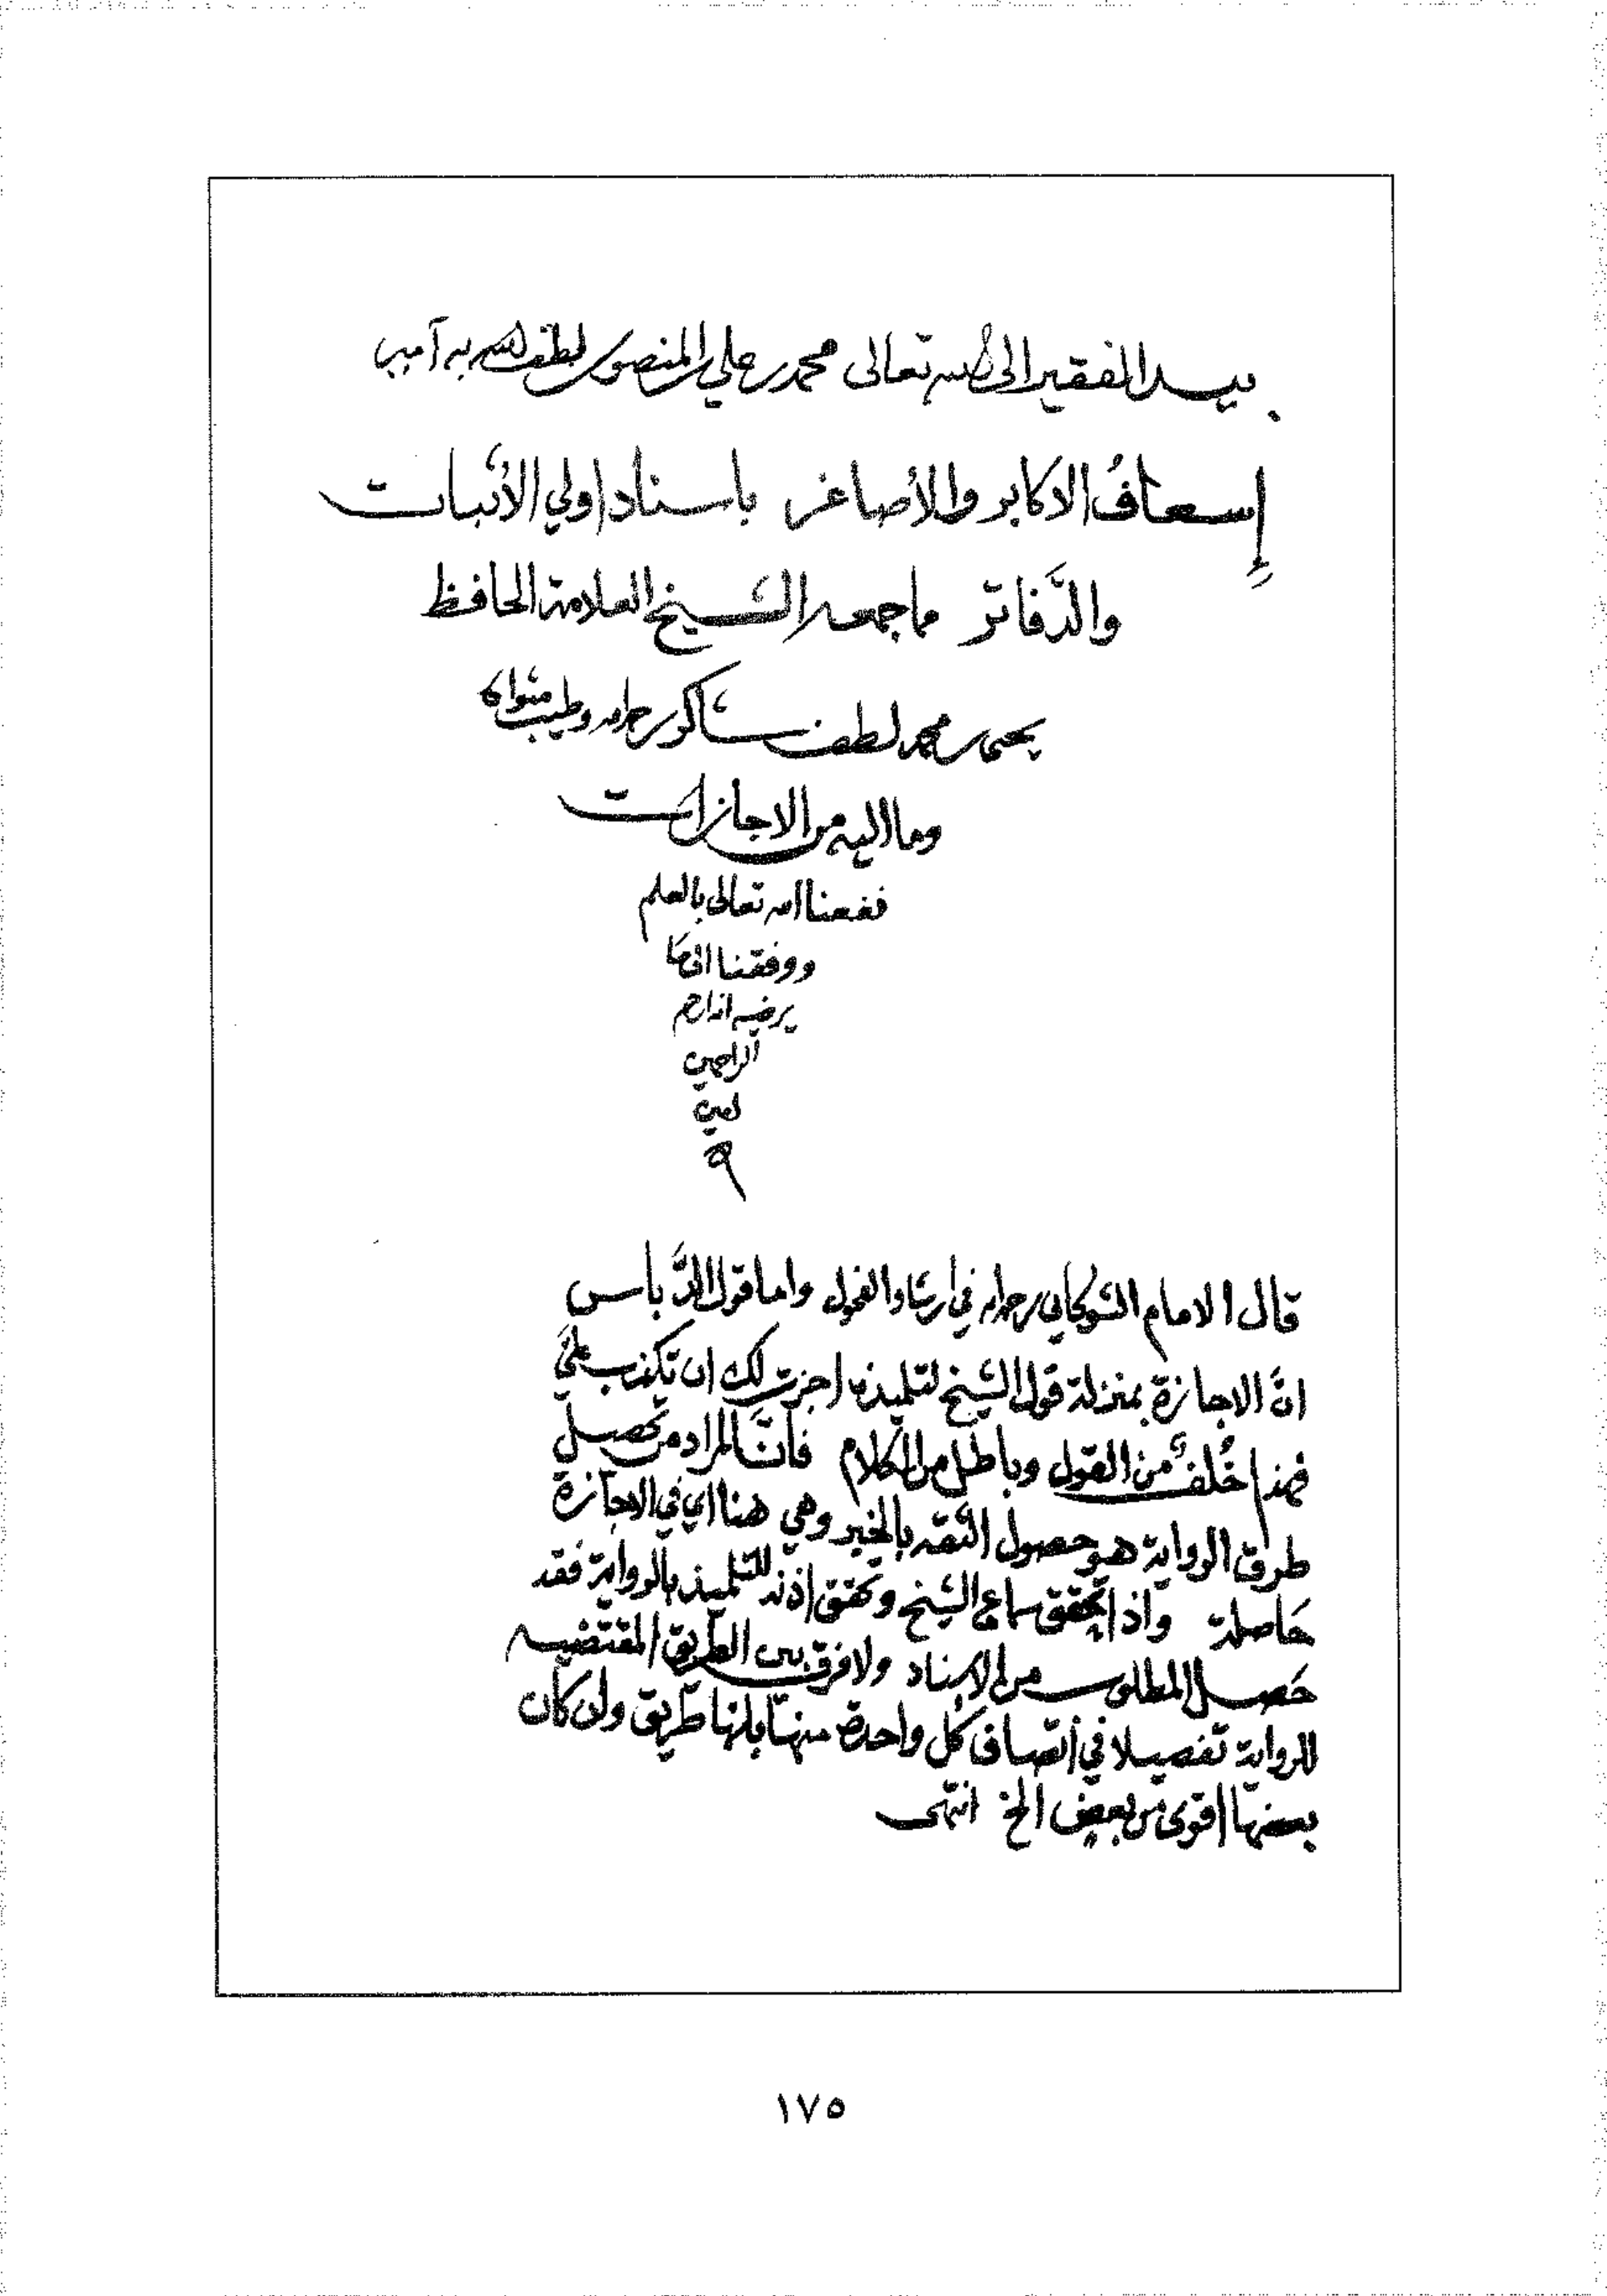 بيد الفقير الى الله تعالى محمد بن علي المنصور لطف الله به آمين
إسعافُ الاكابر والأصاغر باسناد اولي الأثبات
والدَّفاتر ما جمعه الشيخ العلامة الحافظ
يحيى بن محمد لطف شاكر رحمه الله وطيب مثواه
وما اليه من الاجازات
نفعنا الله تعالى بالعلم
ووفقنا الى ما
يرضيه انه ارحم
الراحمين
امين
قال الامام الشوكاني رحمه الله في ارشاد الفحول واما قول الدَّباس
انَّ الاجازة بمنزلة قول الشيخ لتلميذه اجزت لك ان تكذب عليَّ
فهذا خُلفٌ من القول وباطل من الكلام فانَّ المراد من تحصيل
طرق الرواية هو حصول الثقة بالخبر وهي هنا اي في الاجازة
حَاصلة واذا تحقق سماع الشيخ وتحقق اذنه للتلميذ بالرواية فقد
حَصل المطلوب من الاسناد ولا فرق بين الطريق المقتضيه
للرواية تفصيلا في اتصاف كل واحدة منها بانها طريق وان كان
بعضها اقوى من بعض الخ انتهى
١٧٥